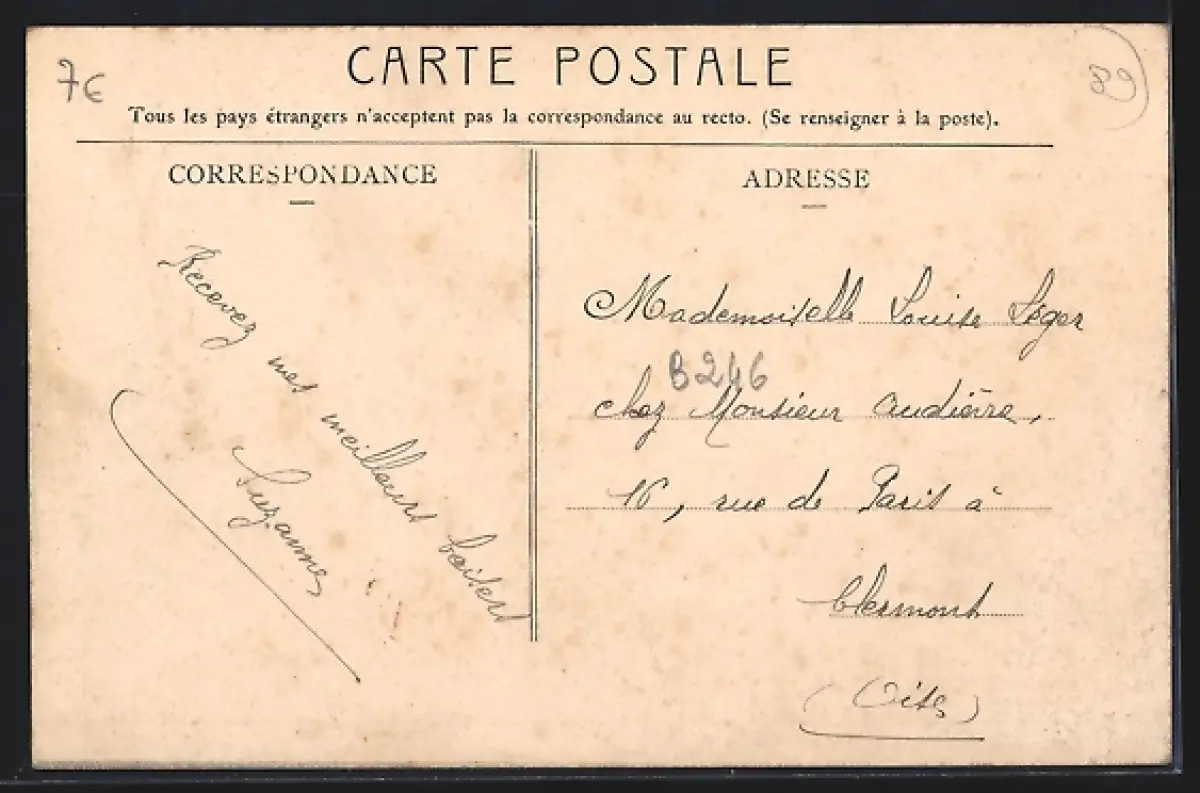 7€
89
CARTE POSTALE
Tous les pays étrangers n'acceptent pas la correspondance au recto. (Se renseigner à la poste).
CORRESPONDANCE
Recevez mes meilleurs baisers
Suzanne
ADRESSE
Mademoiselle Louise Léger
B246
chez Monsieur Audièvre,
16, rue de Paris à
Clermont
(Oise)